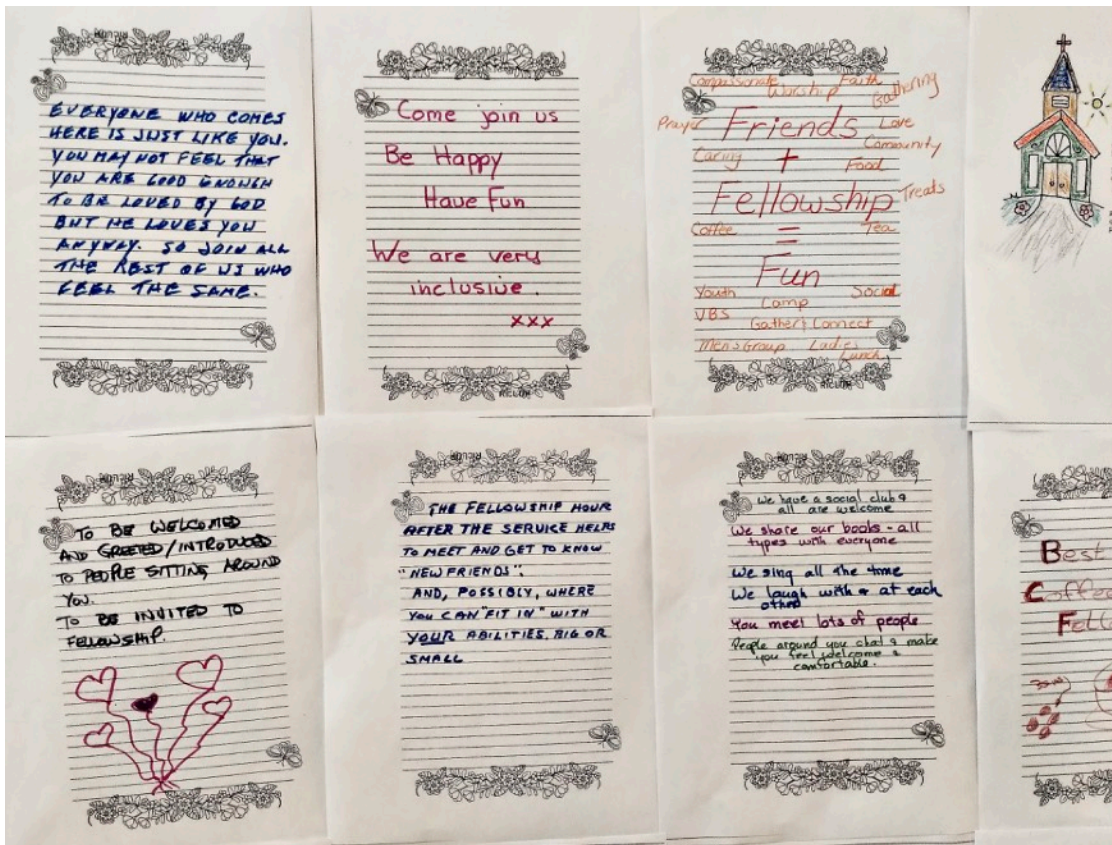 EVERYONE WHO COMES
HERE IS JUST LIKE YOU.
YOU MAY NOT FEEL THAT
YOU ARE GOOD ENOUGH
TO BE LOVED BY GOD
BUT HE LOVES YOU
ANYWAY. SO JOIN ALL
THE REST OF US WHO
FEEL THE SAME.
Come join us
Be Happy
Have Fun
We are very
inclusive.
xxx
Compassionate Worship Faith Gathering
Prayer Friends Love
Caring + Food Community
Fellowship Treats
Coffee = Tea
Fun
Youth Camp Social
VBS
Gather & Connect
Men's Group Ladies
Lunch
TO BE WELCOMED
AND GREETED/INTRODUCED
TO PEOPLE SITTING AROUND
YOU.
TO BE INVITED TO
FELLOWSHIP.
THE FELLOWSHIP HOUR
AFTER THE SERVICE HELPS
TO MEET AND GET TO KNOW
"NEW FRIENDS".
AND, POSSIBLY, WHERE
YOU CAN "FIT IN" WITH
YOUR ABILITIES, BIG OR
SMALL
We have a social club &
all are welcome
We share our books - all
types with everyone
We sing all the time
We laugh with & at each
other
You meet lots of people
People around you chat & make
you feel welcome &
comfortable.
Best
Coffee